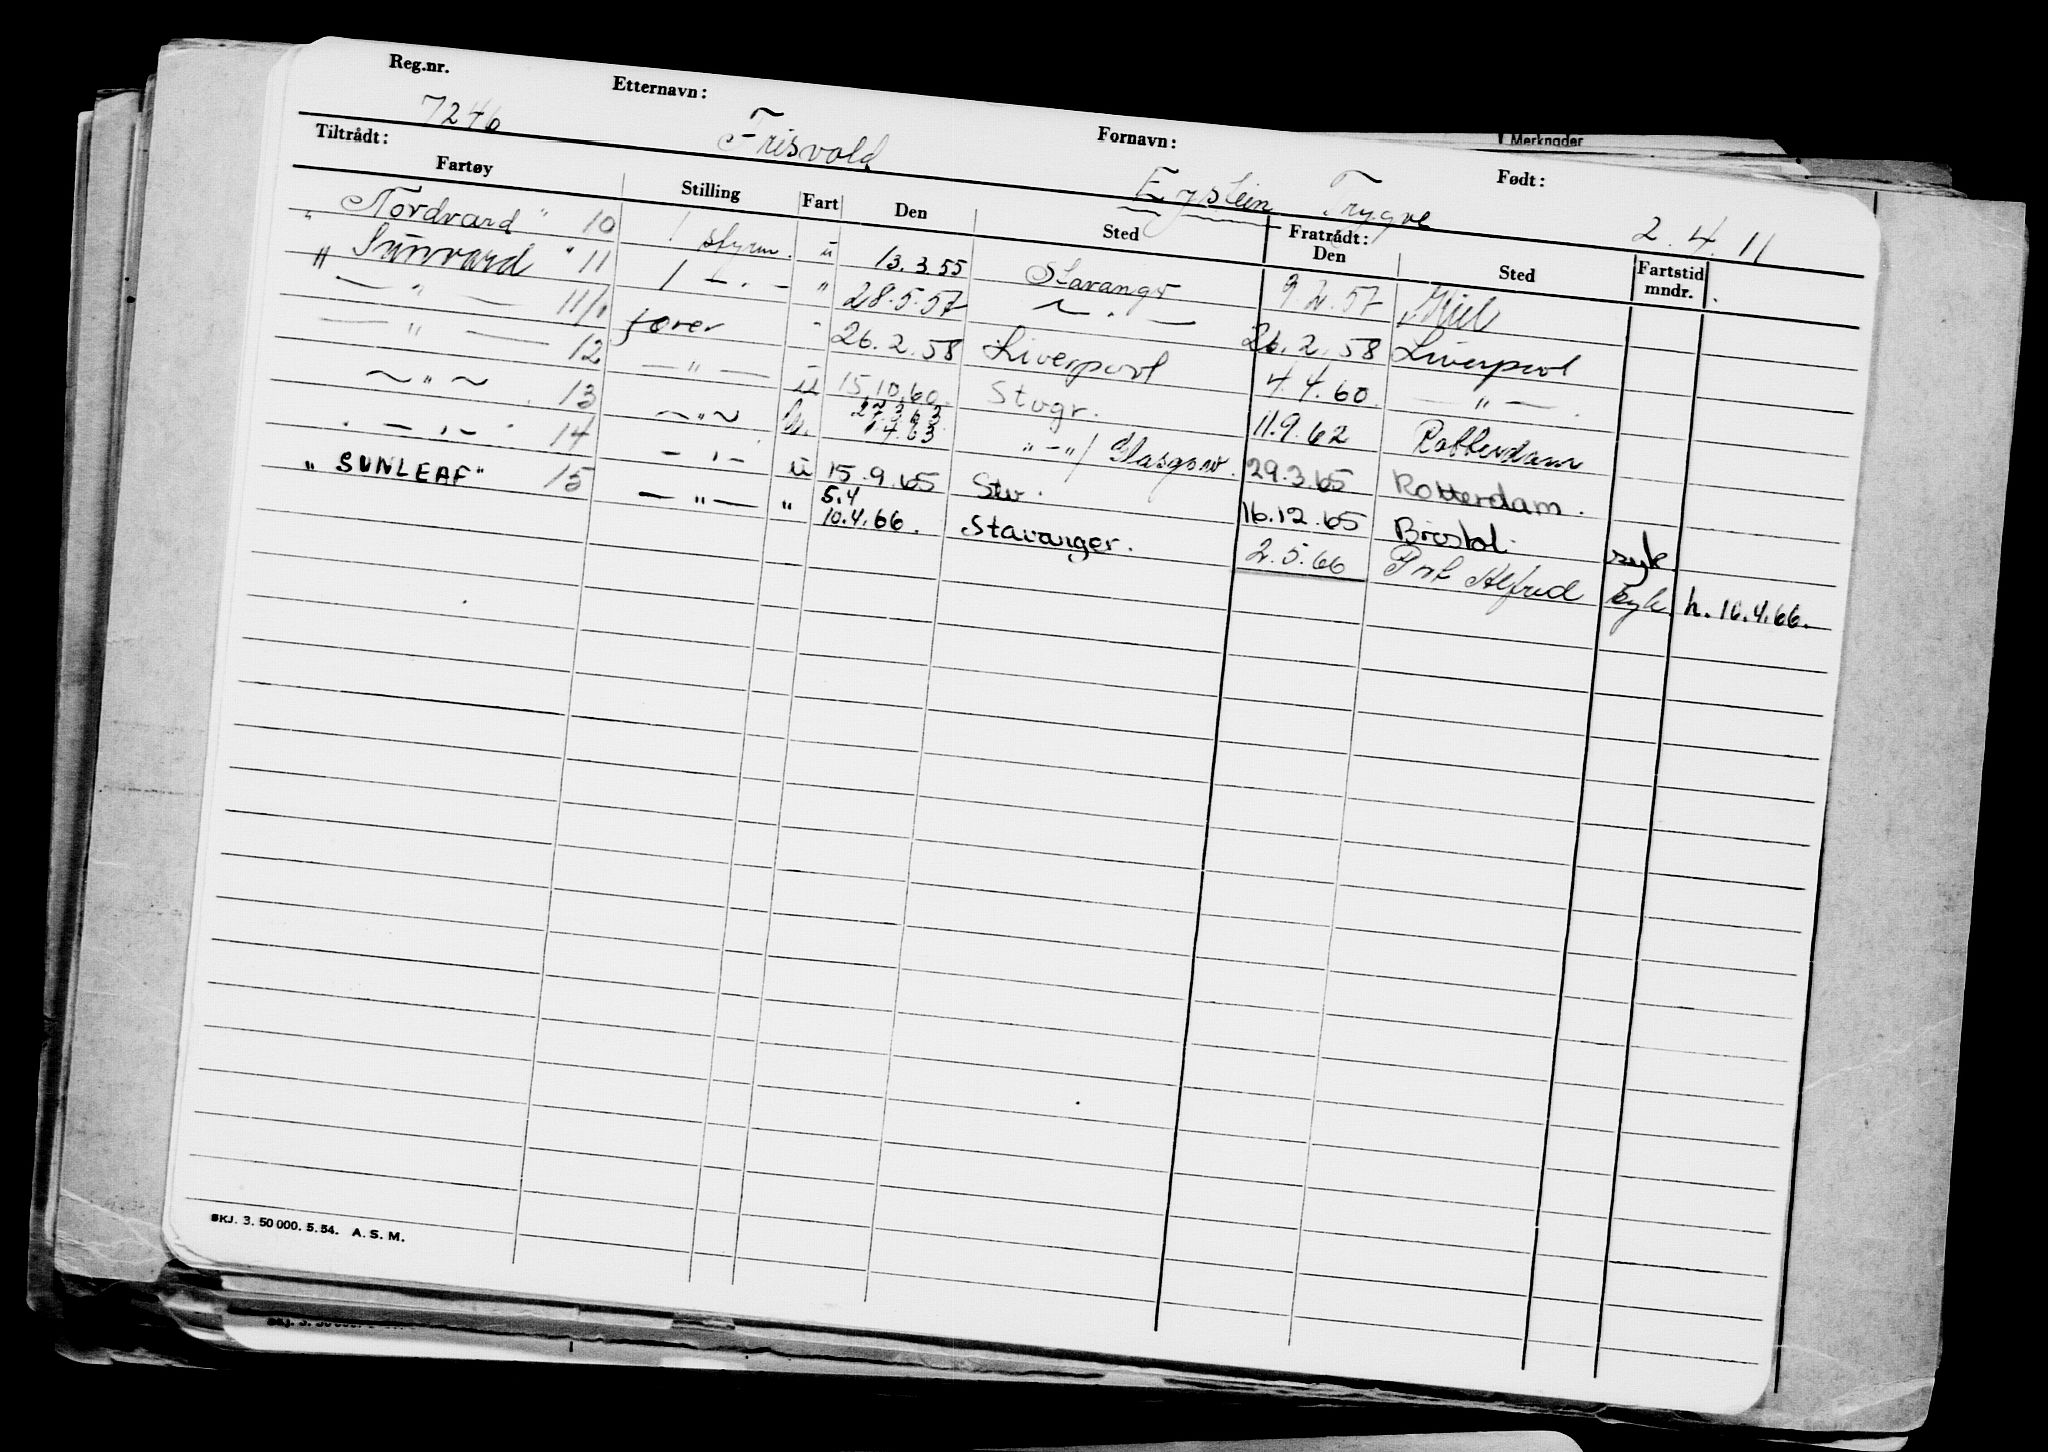 Merknader
Reg.nr. 7246 Etternavn: Frisvold Fornavn: Eystein Trygve Født: 2.4.11
Tiltrådt: Fratrådt:
Fartøy Stilling Fart Den Sted Den Sted Fartstid mndr.
" Nordvard " 10 1 styrm. u 13.3.55 Stavangr 9 2.57 Kiel
" Sunvard " 11 1 — . — " 28.5.57 — . — 26.2.58 Liverpool
— " — 11/1 fører - 26.2.58 Liverpool 4.4.60 — " — .
— " — 12 — " — u 15.10.60. Stvgr. 11.9.62 Rotterdam
~ " ~ . 13 ~ " ~ u. 27.3.63 1.4.63 " - " / Glasgow. 29.3.65 Rotterdam.
. — . — . 14 — . — u 15.9.65 Stv. 16.12.65 Bristol. syk
" SUNLEAF" 15 — " — " 5.4 10.4.66. Stavanger. 2.5.66 Prt Alfred Syk h. 16.4.66.
SKJ. 3. 50 000. 5. 54. A. S. M.